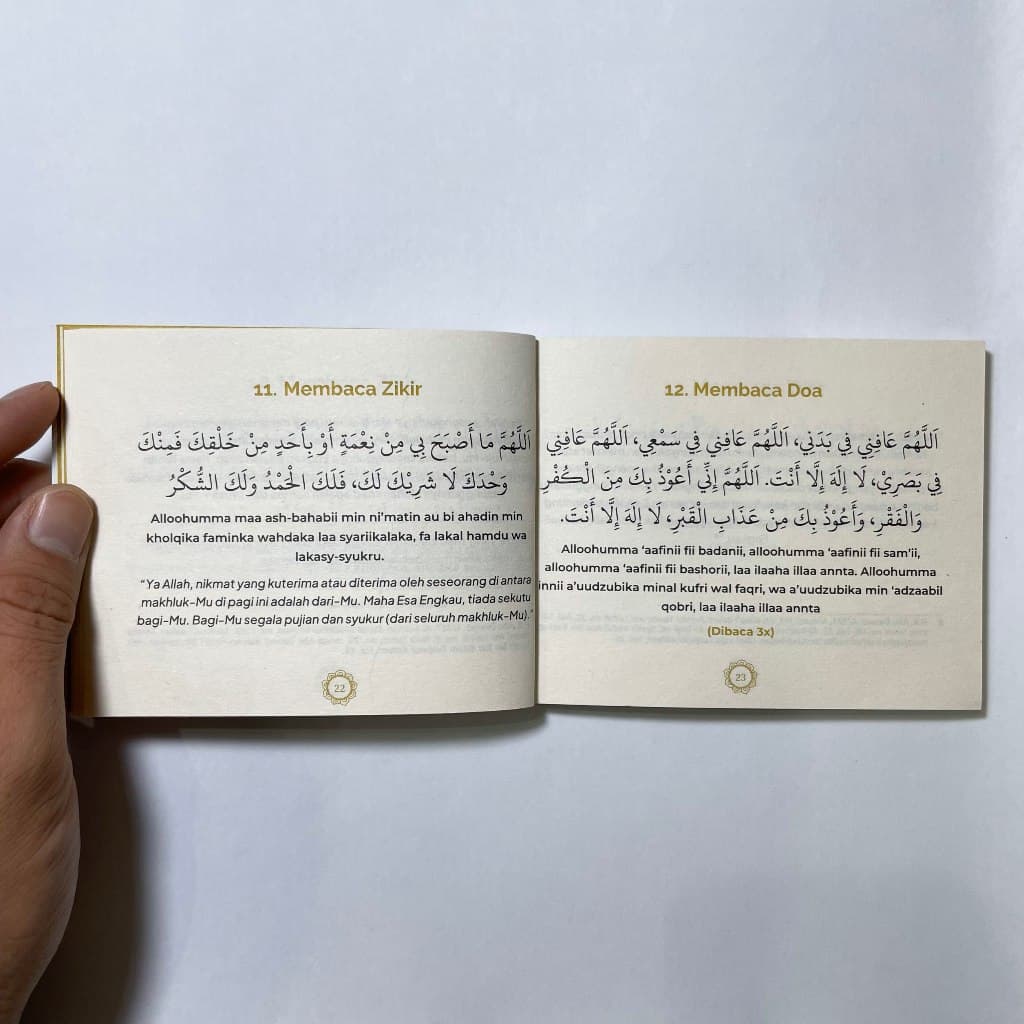 11. Membaca Zikir
اَللَّهُمَّ مَا أَصْبَحَ بِي مِنْ نِعْمَةٍ أَوْ بِأَحَدٍ مِنْ خَلْقِكَ فَمِنْكَ
وَحْدَكَ لَا شَرِيْكَ لَكَ، فَلَكَ الْحَمْدُ وَلَكَ الشُّكْرُ
Alloohumma maa ash-bahabii min ni'matin au bi ahadin min
kholqika faminka wahdaka laa syariikalaka, fa lakal hamdu wa
lakasy-syukru.
"Ya Allah, nikmat yang kuterima atau diterima oleh seseorang di antara
makhluk-Mu di pagi ini adalah dari-Mu. Maha Esa Engkau, tiada sekutu
bagi-Mu. Bagi-Mu segala pujian dan syukur (dari seluruh makhluk-Mu)."
22
12. Membaca Doa
اَللَّهُمَّ عَافِنِي فِي بَدَنِي، اَللَّهُمَّ عَافِنِي فِي سَمْعِي، اَللَّهُمَّ عَافِنِي
فِي بَصَرِيْ، لَا إِلَهَ إِلَّا أَنْتَ. اَللَّهُمَّ إِنِّي أَعُوْذُ بِكَ مِنَ الْكُفْرِ
وَالْفَقْرِ، وَأَعُوْذُ بِكَ مِنْ عَذَابِ الْقَبْرِ، لَا إِلَهَ إِلَّا أَنْتَ.
Alloohumma 'aafinii fii badanii, alloohumma 'aafinii fii sam'ii,
alloohumma 'aafinii fii bashorii, laa ilaaha illaa annta. Alloohumma
innii a'uudzubika minal kufri wal faqri, wa a'uudzubika min 'adzaabil
qobri, laa ilaaha illaa annta
(Dibaca 3x)
23